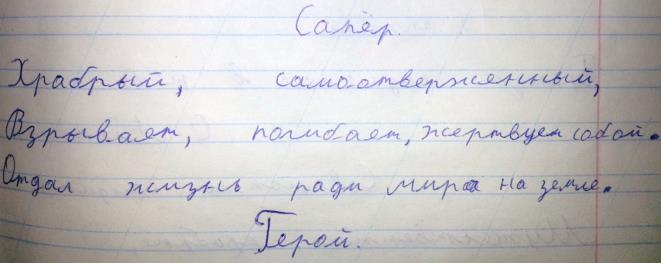 Сапёр.
Храбрый, самоотверженный,
Взрывает, погибает, жертвует собой.
Отдал жизнь ради мира на земле.
Герой.